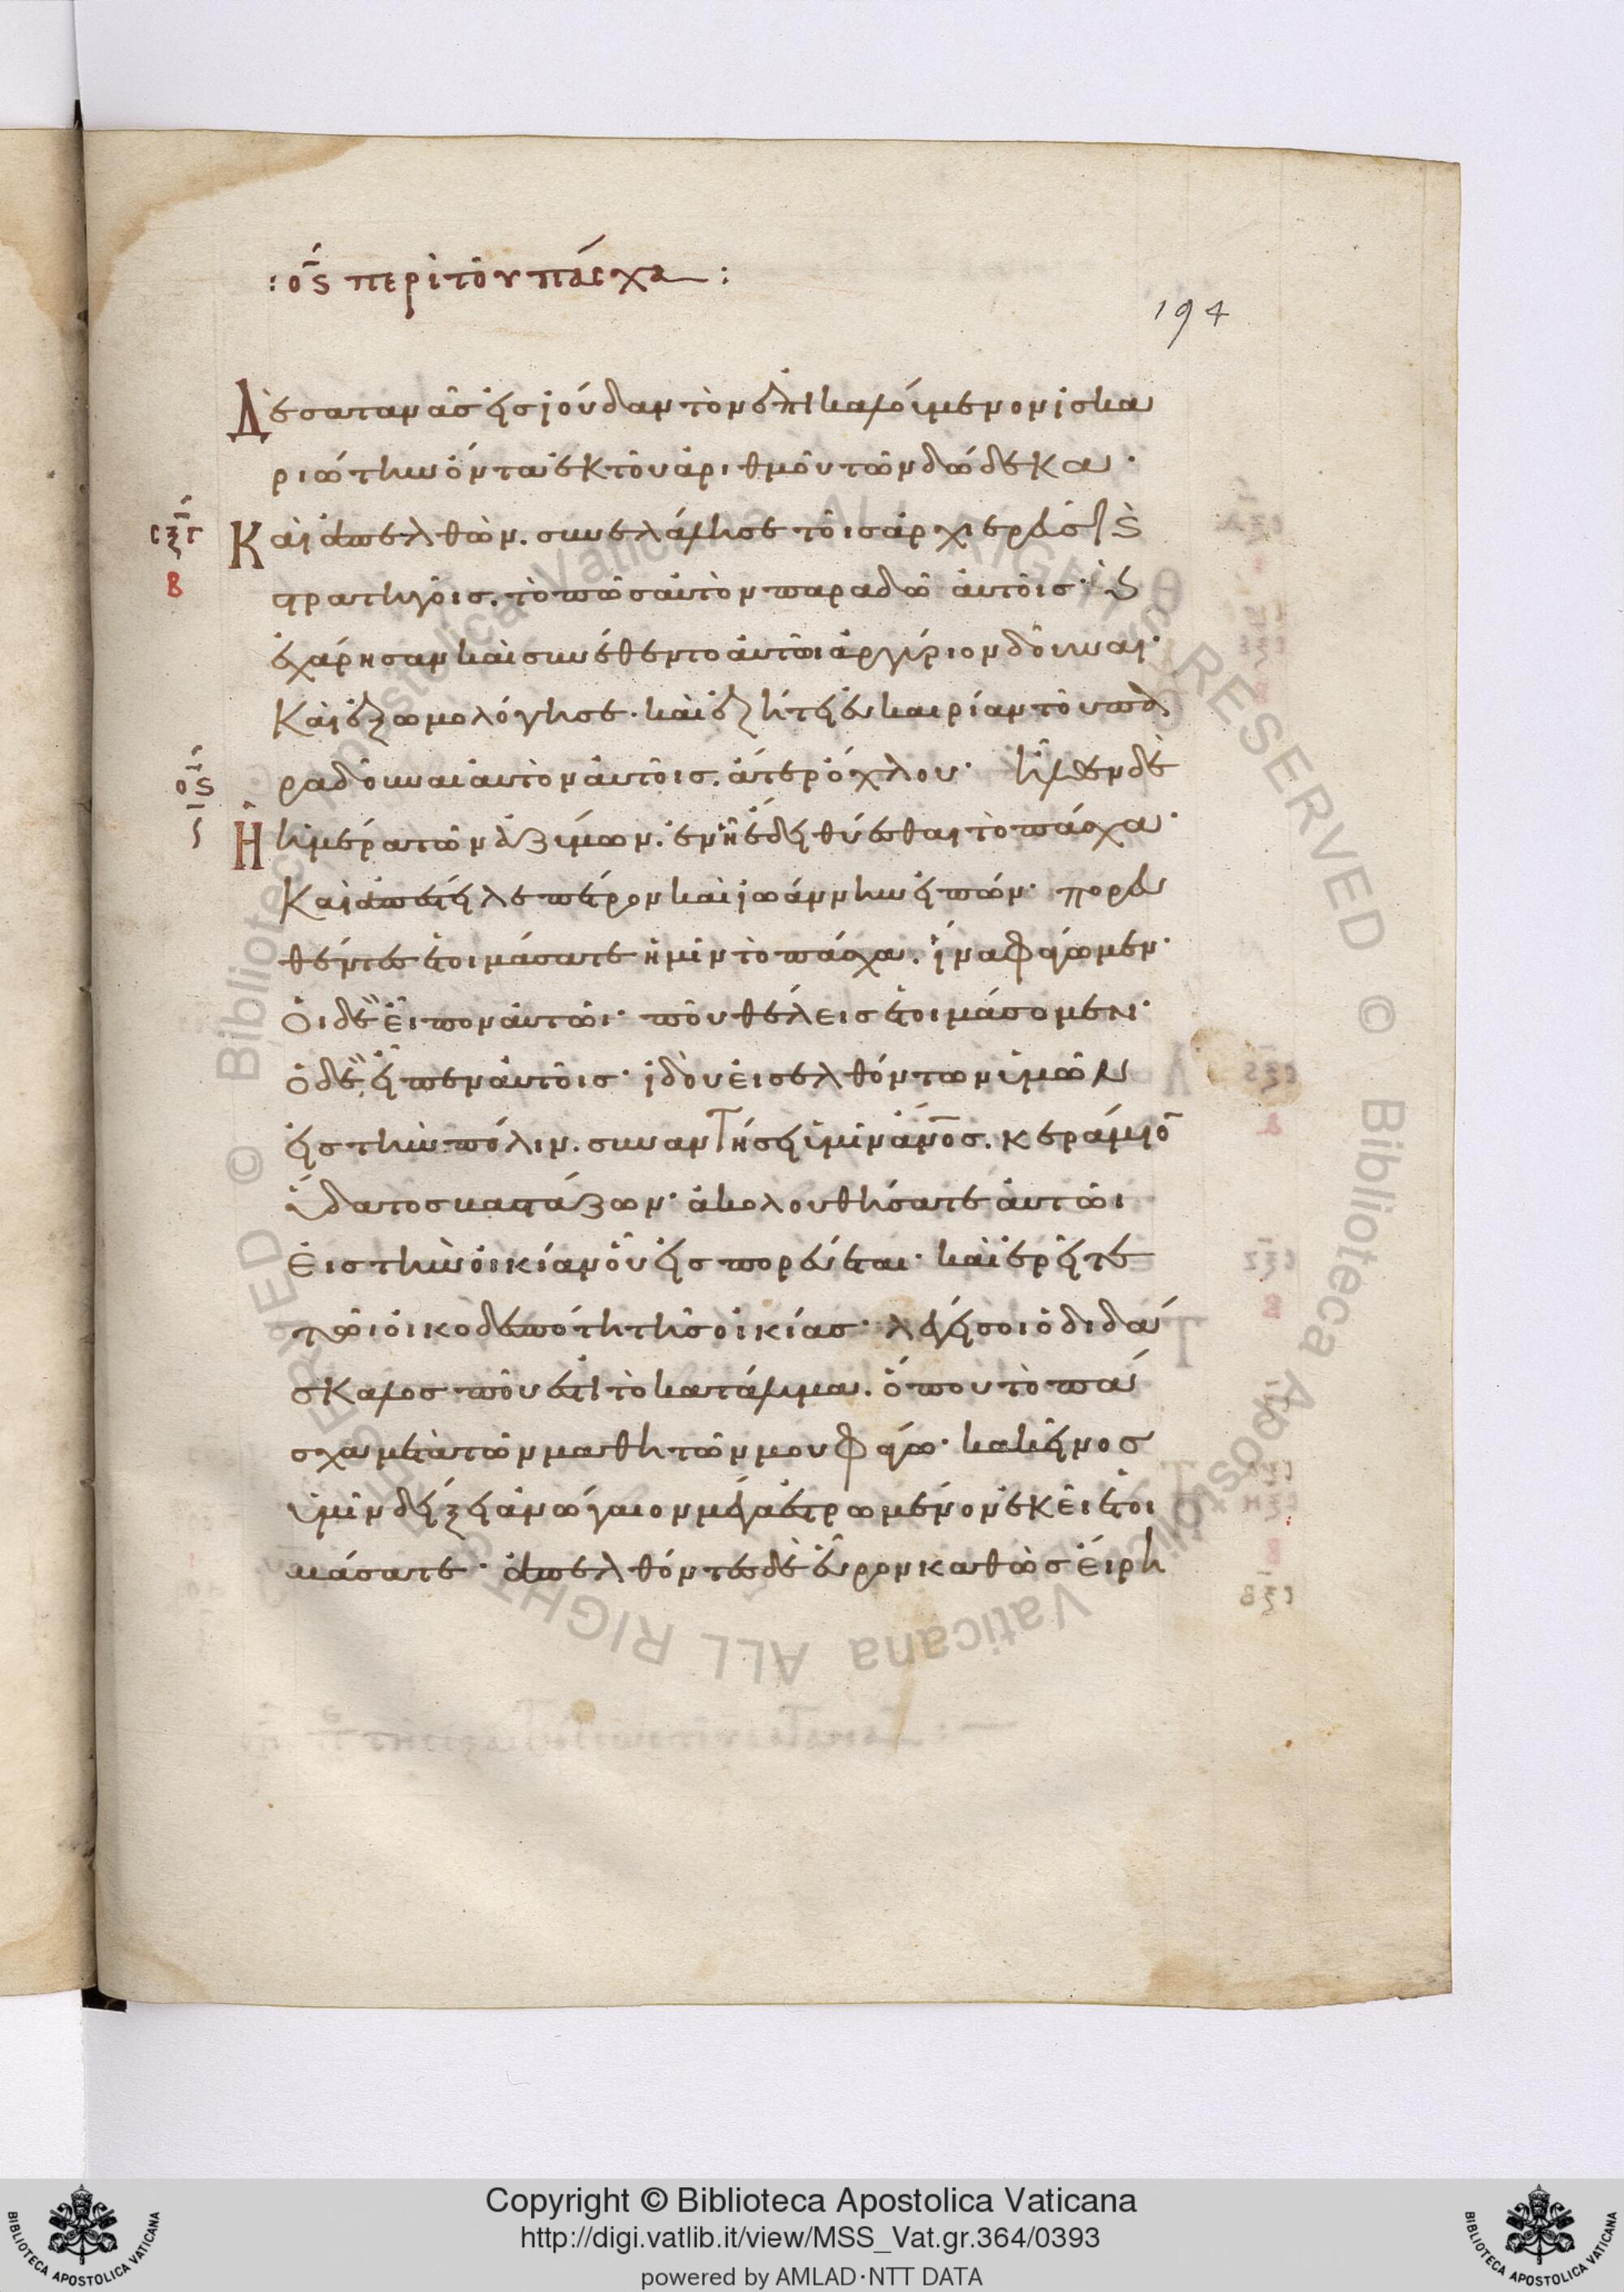 : ος περὶ τοῦ πάσχα :
194
Δὲ σατανᾶς εἰς ἰούδαν τὸν ἐπικαλούμενον ἰσκα
ριώτην ὄντα ἐκ τοῦ ἀριθμοῦ τῶν δώδεκα·
σξγ
Καὶ ἀπελθὼν. συνελάλησε τοῖς ἀρχιερεῦσι ϗ
β
στρατηγοῖς. τὸ πῶς αὐτὸν παραδῶ αὐτοῖς· ϗ
ἐχάρησαν καὶ συνέθεντο αὐτῶι ἀργύριον δοῦναι·
Καὶ ἐξωμολόγησε· καὶ ἐζήτει εὐκαιρίαν τοῦ πα
ος
ραδοῦναι αὐτὸν αὐτοῖς. ἄτερ ὄχλου· ἦλθεν δὲ
Ἡ ἡμέρα τῶν ἀζύμων. ἐν ἧ ἔδει θύεσθαι τὸ πάσχα·
Καὶ ἀπέστειλε πέτρον καὶ ἰωάννην εἰπών· πορευ
θέντες ἑτοιμάσατε ἡμῖν τὸ πάσχα. ἵνα φάγωμεν·
Οἱ δὲ εἶπον αὐτῶι· ποῦ θέλεις ἑτοιμάσομεν·
ὁ δὲ εἶπεν αὐτοῖς· ἰδοὺ εἰσελθόντων ὑμῶν
εἰς τὴν πόλιν. συναντήσει ὑμῖν ἄνος. κεράμιο̅
ὕδατος βαστάζων· ἀκολουθήσατε αὐτῶι
εἰς τὴν οἰκίαν οὗ εἰσπορεύεται· καὶ ἐρεῖτε
τῶι οἰκοδεσπότη τῆς οἰκίας· λέγει σοι ὁ διδά
σκαλος ποῦ ἐστὶ τὸ κατάλυμα. ὅπου τὸ πά
σχα μετὰ τῶν μαθητῶν μου φάγω· κακεῖνος
ὑμῖν δείξει ἀνώγαιον μέγα ἐστρωμένον ἐκεῖ ἑτοι
μάσατε· ἀπελθόντες δὲ εὗρον καθὼς εἴρη
Copyright © Biblioteca Apostolica Vaticana
http://digi.vatlib.it/view/MSS_Vat.gr.364/0393
powered by AMLAD·NTT DATA